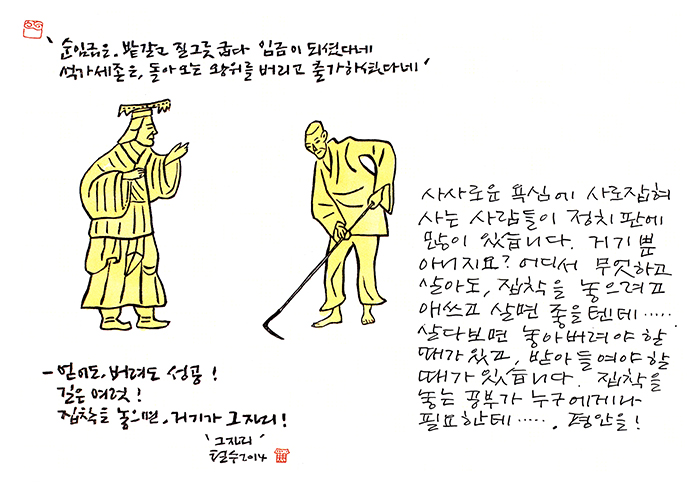 '순임금은, 밭 갈고 질그릇 굽다 임금이 되셨다네
석가세존은, 돌아오는 왕위를 버리고 출가하셨다네'
사사로운 욕심에 사로잡혀
사는 사람들이 정치판에
많이 있습니다. 거기 뿐
아니지요? 어디서 무엇하고
살아도, 집착을 놓으려고
애쓰고 살면 좋을텐데……
살다보면 놓아버려야 할
때가 있고, 받아들여야 할
때가 있습니다. 집착을
놓는 공부가 누구에게나
필요한데……. 평안을!
- 얻어도, 버려도 성공!
길은 여럿!
집착을 놓으면, 거기가 그 자리!
'그 자리'
철수 2014